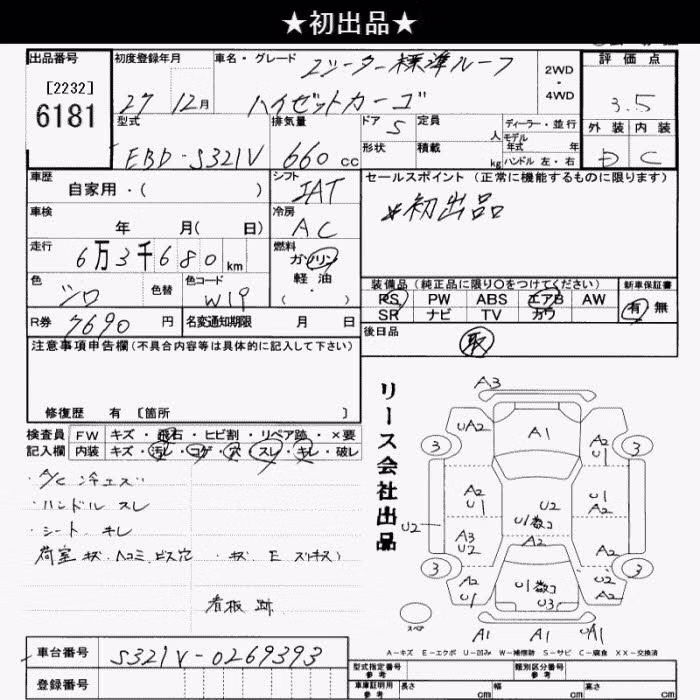 ★初出品★
出品番号
[2232]
6181
初度登録年月
27 12月
車名・グレード
2シーター 標準ルーフ
ハイゼットカーゴ
2WD
・
4WD
評価点
3.5
外装 内装
D C
型式
EBD-S321V
排気量
660 cc
ドア 5
定員 人
形状
積載 kg
ディーラー・並行
モデル
年式 年
ハンドル 左・右
車歴
自家用・( )
シフト
IAT
セールスポイント (正常に機能するものに限ります)
*初出品
車検
年 月( 日)
冷房
AC
走行
6万3千680 km
燃料
ガソリン
軽油
( ・ )
色
シロ
色替
色コード
W19
装備品(純正品に限り○をつけてください)
新車保証書
PS PW ABS エアB AW
SR ナビ TV カワ
有 無
R券 7690 円
名変通知期限 月 日
後日品
取
注意事項申告欄(不具合内容等は具体的に記入して下さい)
修復歴 有 [箇所 ]
検査員
記入欄
FW キズ・飛石・ヒビ割・リペア跡・×要
内装 キズ・汚レ・コゲ・穴・スレ・キレ・破レ
・A/C 冷エズ
・ハンドル スレ
・シート キレ
荷室 キズ、ヘコミ、ビス穴
看板跡
リース会社出品
A3
UA2
A1
A2
U1
3
3
A2
U1
U1
A2
U2
U1数コ
U2
A3
U2
A2
A1
A2
3
3
A2
U1
U1数コ
U3
U2
A2
スペア
A1
A1
UA1
A-キズ E-エクボ U-凹み W-補修跡 S-サビ C-腐食 XX-交換済
車台番号
S321V-0269393
登録番号
型式指定番号
参考
類別区分番号
参考
車庫証明用
参考
長さ cm
幅 cm
高さ cm